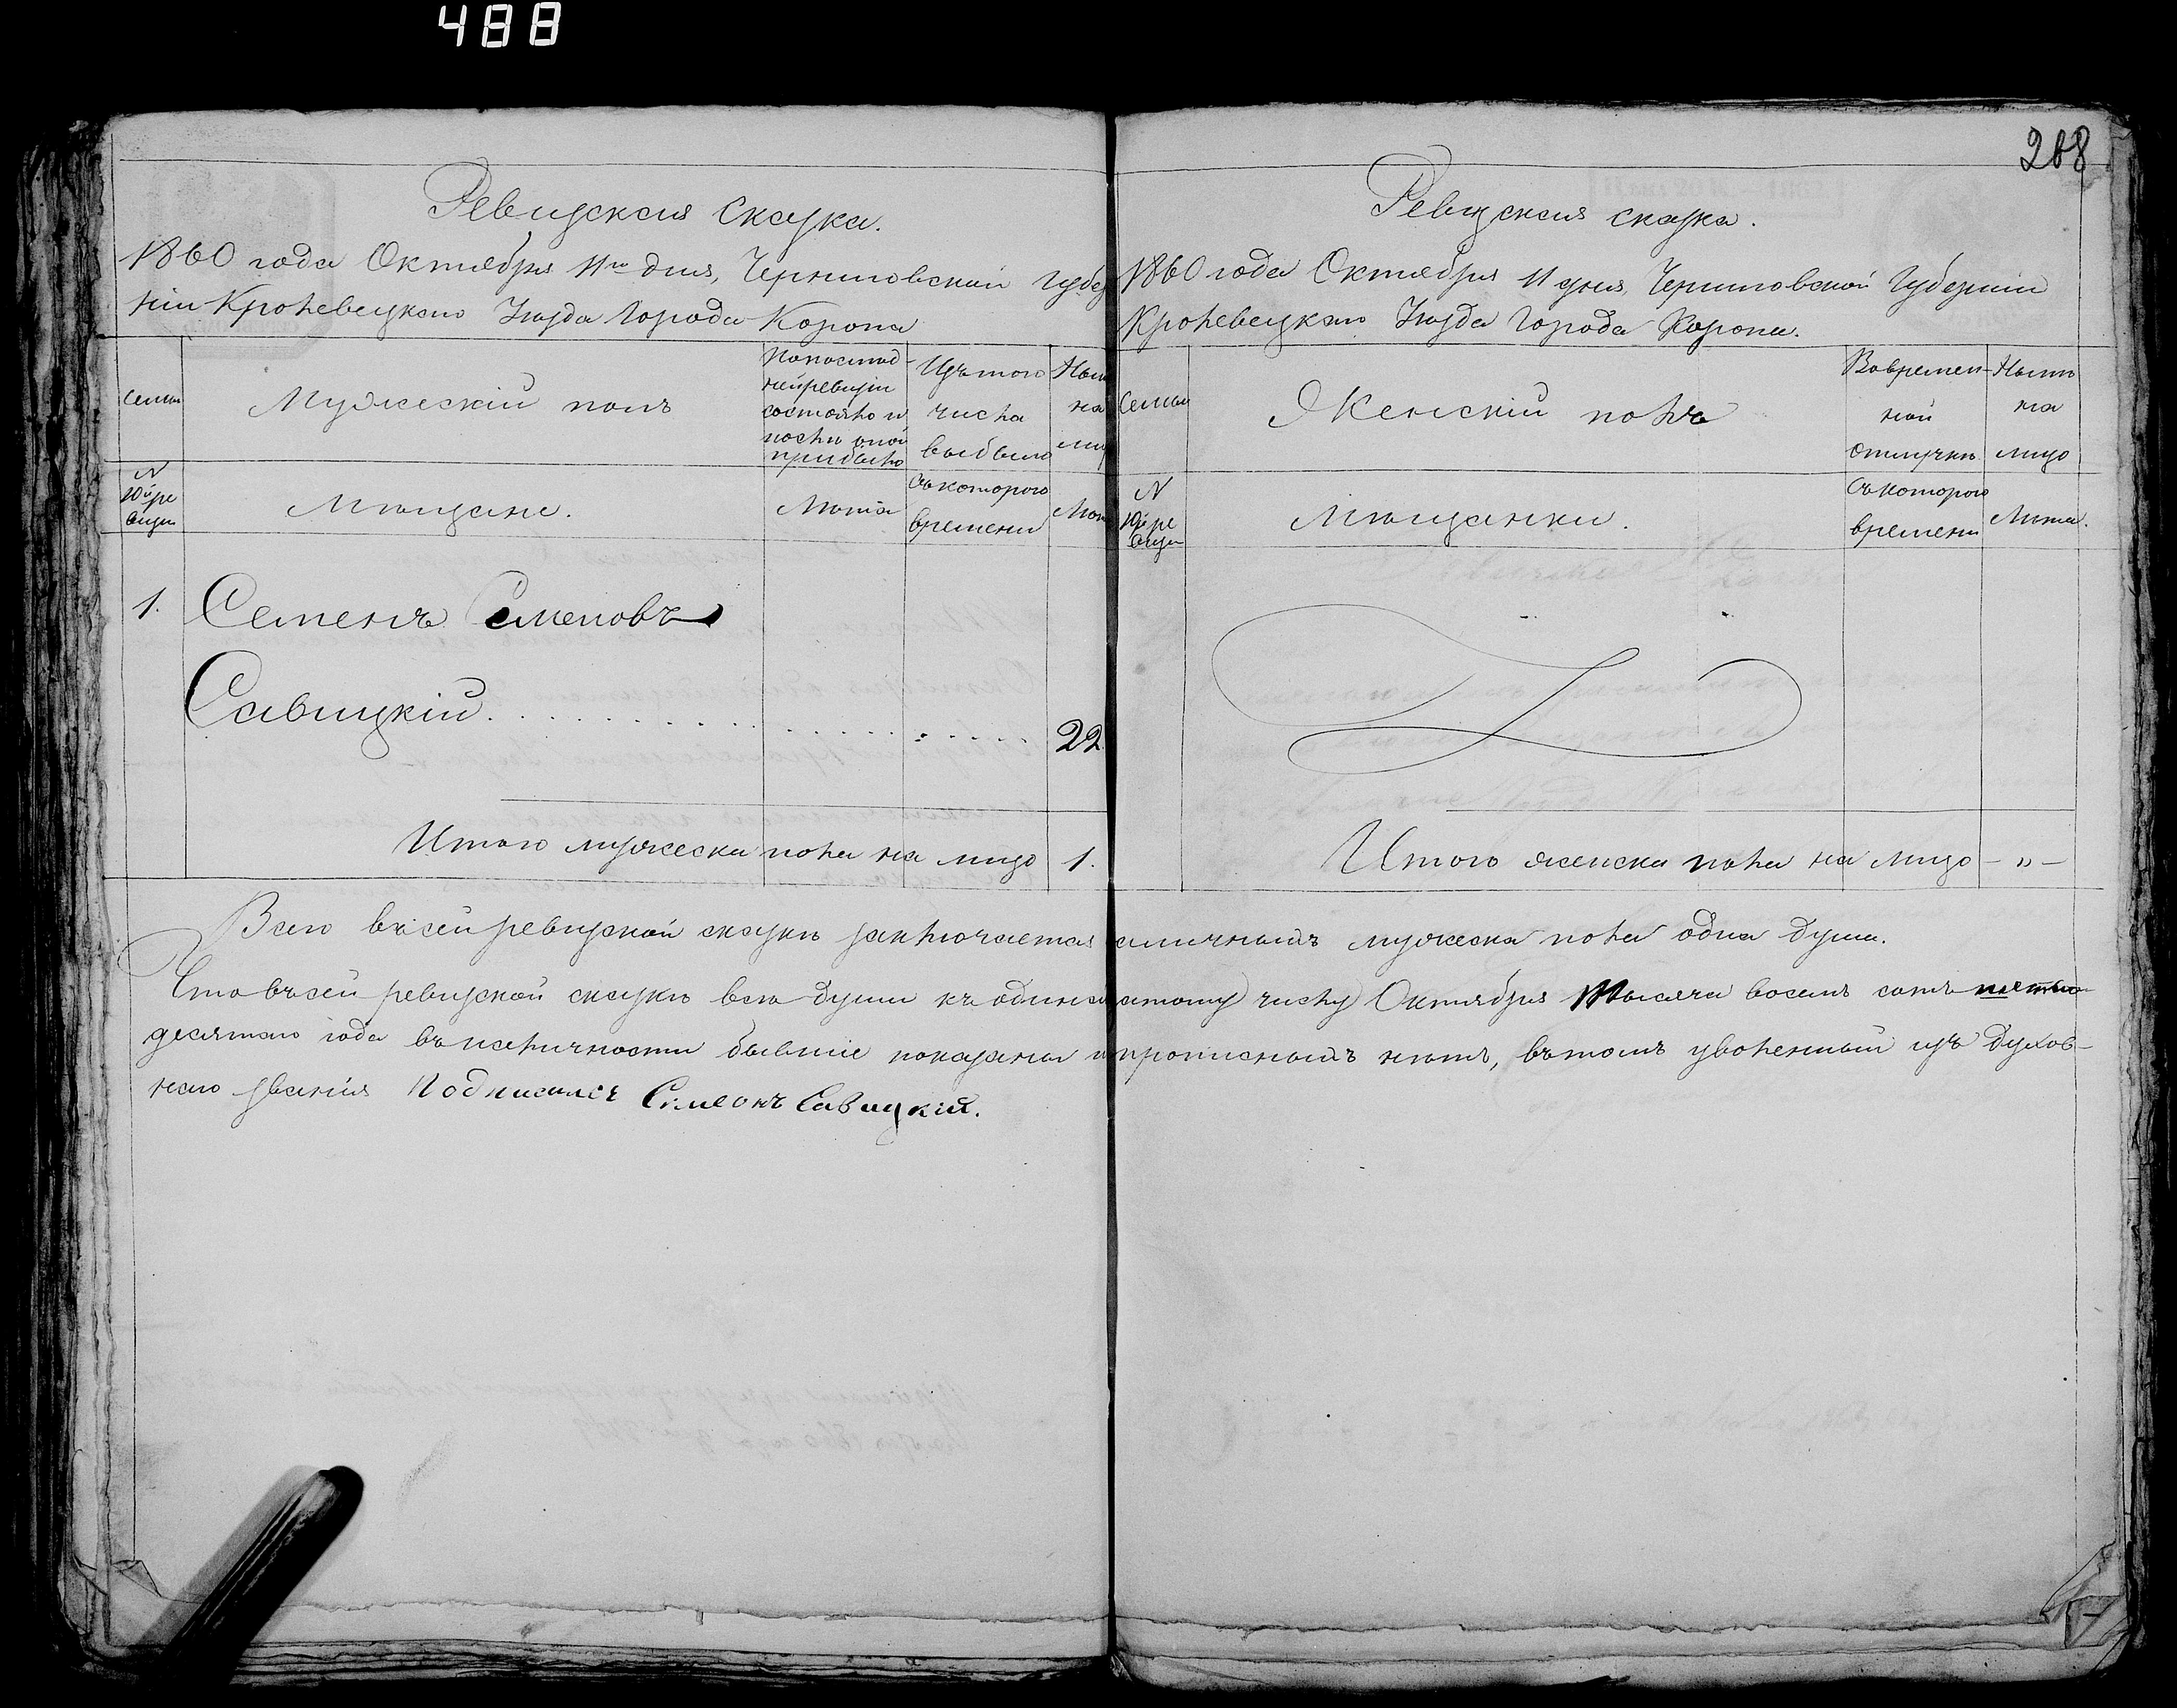 488
208
Ревизская Сказка.
1860 года Октября 11го дня, Черниговской Губер
ніи Кролевецкаго Уѣзда Города Коропа
Семьи
Мужескій полъ
Попослѣд
ней ревизіи
состояло и
послѣ оной
прибыло
Изъ того
числа
выбыло
Нын
на
ли
N
10й ре
визіи
Мѣщане.
Лѣта
Съ котораго
времени
Лѣт
1. Семенъ Семеновъ
Савицкій . . . . . . . . . . 22
Итого мужеска пола на лицо 1.
Ревизская сказка.
1860 года Октября 11 дня, Черниговской Губерніи
Кролевецкаго Уѣзда Города Коропа.
Семьи
Женскій полъ
Во времен-
ной
отлучкѣ
Нынѣ
на
лицо
N
10й ре
визіи
Мѣщанки.
Съ котораго
времени
Лѣта.
Итого женска пола на лицо - „ -
Всего въ сей ревизской сказкѣ заключается наличныхъ мужеска пола одна душа.
Что въ сей ревизской сказкѣ всѣ души къ одинадцатому числу Октября Тысяча восемь сотъ
десятаго года въ наличности бывшіе показаны и прописныхъ нѣтъ, въ томъ уволенный изъ Духов-
наго званія Подписался Симеонъ Савицкій.